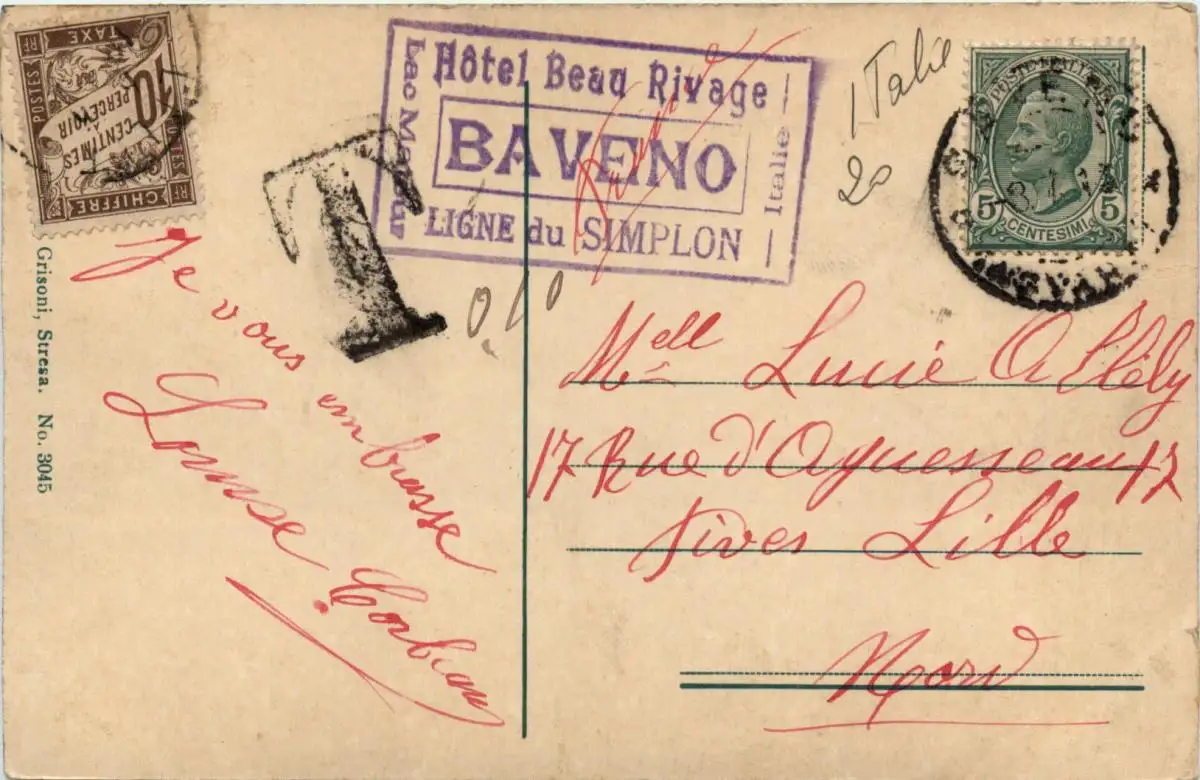 POSTES
TAXE
10
CENTIMES
À
PERCEVOIR
CHIFFRE
RF
RF
RF
Hôtel Beau Rivage
Lac Majeur
BAVENO
Italie
LIGNE du SIMPLON
Italie
20
T
0.10
5
CENTESIMI
5
Grisoni, Stresa. No. 3045
Je vous embrasse
Louise
Mell Lucie
17 Rue d'Aguesseau 17
Fives Lille
Nord
France